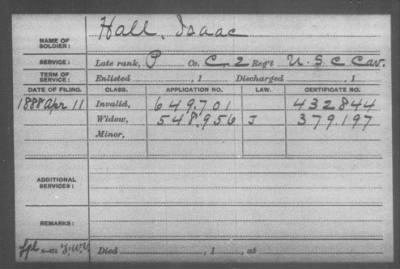 NAME OF SOLDIER: Hall, Isaac
SERVICE: Late rank, P Co. C. 2 Reg't U.S.C Cav.
TERM OF SERVICE: Enlisted , 1 Discharged , 1
DATE OF FILING. CLASS. APPLICATION NO. LAW. CERTIFICATE NO.
1888 Apr 11 Invalid, 649.701 432844
Widow, 548.956 J 379.197
Minor,
ADDITIONAL SERVICES:
REMARKS:
Died , 1 , at